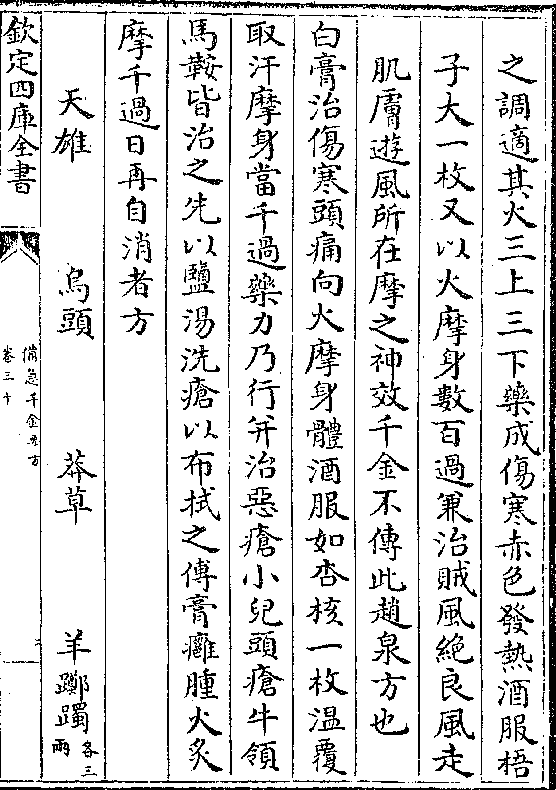 之調適其火三上三下藥成傷寒赤色發熱酒服梧
子大一枚又以火摩身數百過兼治賊風絕良風走
肌膚遊風所在摩之神效千金不傳此趙泉方也
白膏治傷寒頭痛向火摩身體酒服如杏核一枚溫覆
取汗摩身當千過藥力乃行并治惡瘡小兒頭瘡牛領
馬鞍皆治之先以鹽湯洗瘡以布拭之傅膏癰腫火炙
摩千過日再自消者方
天雄 烏頭 莽草 羊躑躅各三兩
欽定四庫全書
備急千金要方
卷三十